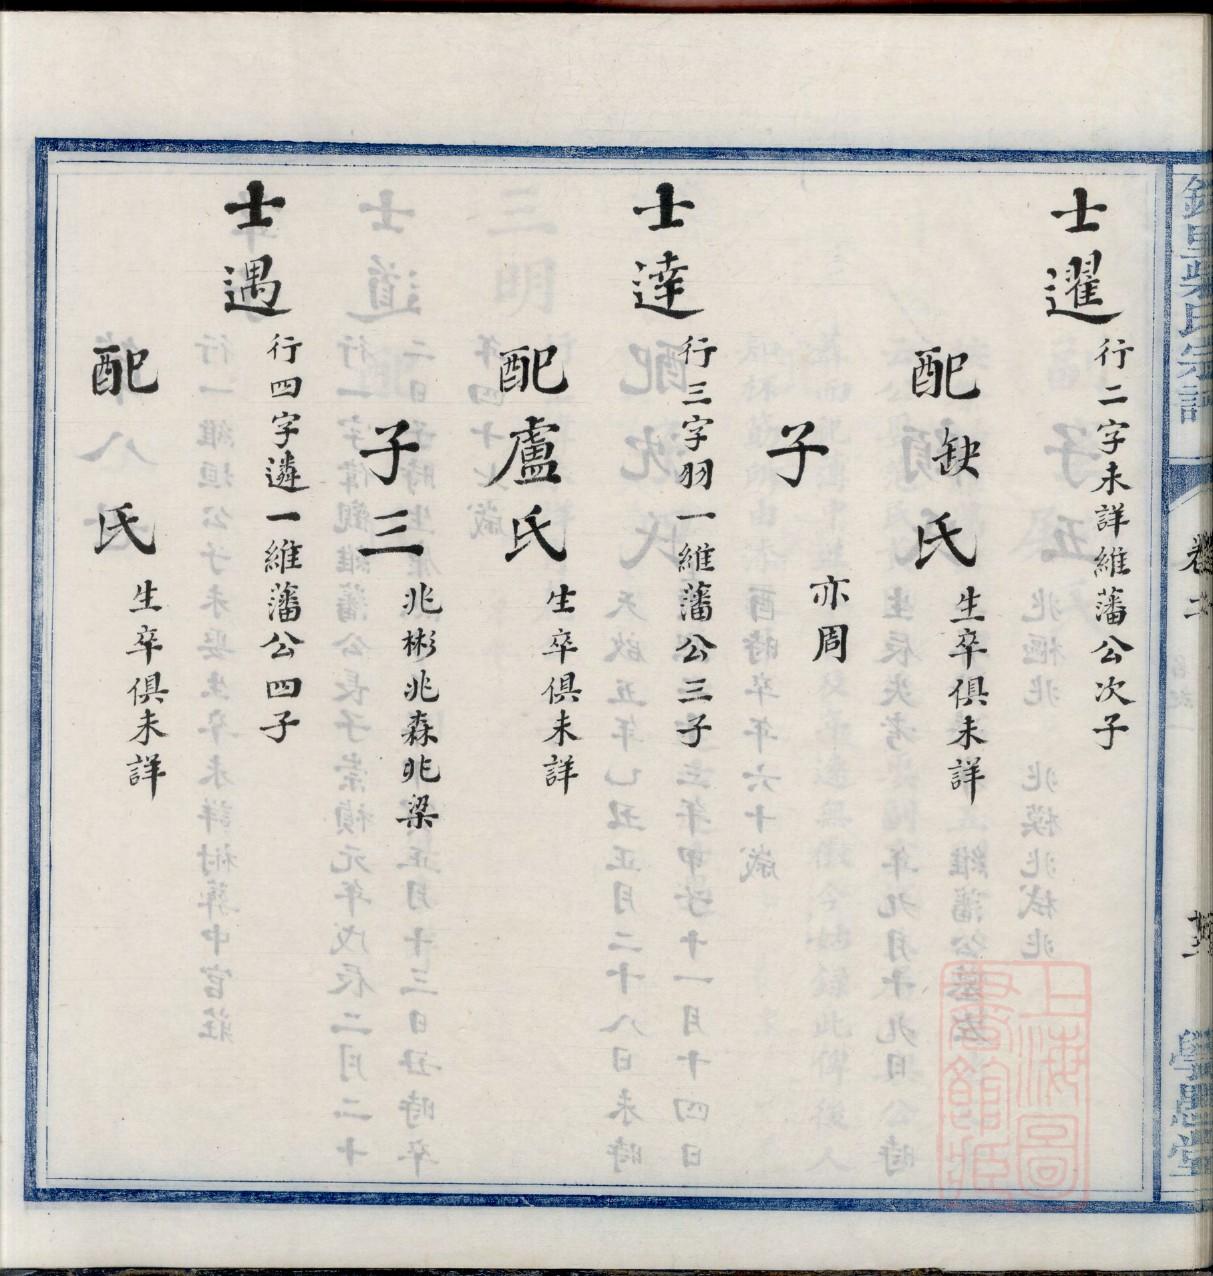 士選
行二字未詳維藩公次子
配缺氏
生卒俱未詳
子
亦周
士達
行三字羽一維藩公三子
配盧氏
生卒俱未詳
子三
兆彬兆森兆梁
士遇
行四字遴一維藩公四子
配氏
生卒俱未詳
學思堂
上海圖
書館藏